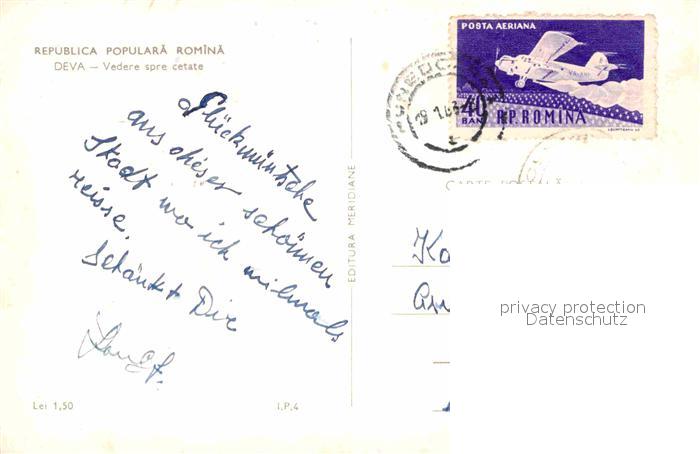 REPUBLICA POPULARĂ ROMÎNĂ
DEVA — Vedere spre cetate
Glückwünsche
aus dieser schönnen
Stadt wo ich vilmals
reisse.
Schänkt Dir
EDITURA MERIDIANE
Lei 1,50
I.P.4
POSTA AERIANA
40
BAN
R.P. ROMINA
CARTE POSTALĂ
Ko
privacy protection
Datenschutz